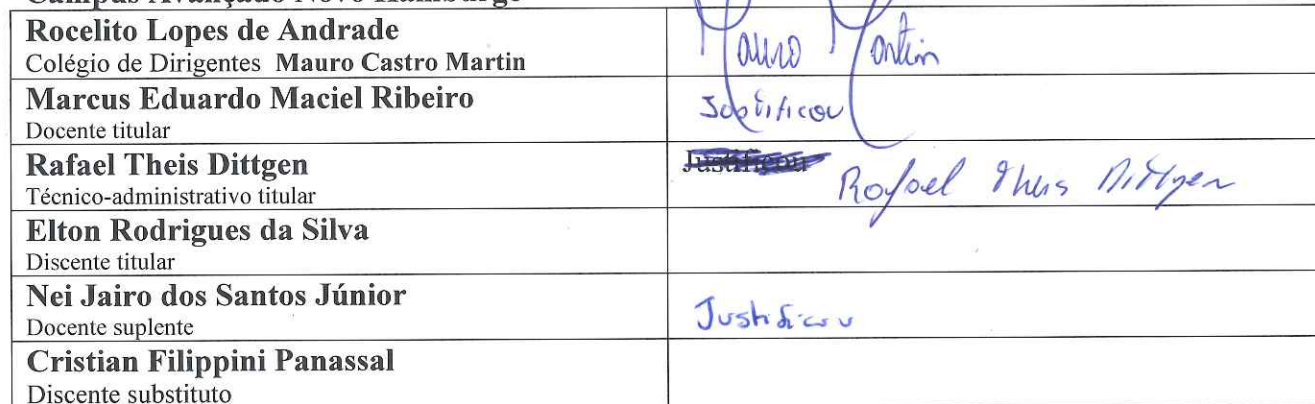 Campus Avançado Novo Hamburgo
Rocelito Lopes de Andrade
Colégio de Dirigentes Mauro Castro Martin
Mauro Martin
Marcus Eduardo Maciel Ribeiro
Docente titular
Justificou
Rafael Theis Dittgen
Técnico-administrativo titular
Justificou
Rafael Theis Dittgen
Elton Rodrigues da Silva
Discente titular
Nei Jairo dos Santos Júnior
Docente suplente
Justificou
Cristian Filippini Panassal
Discente substituto